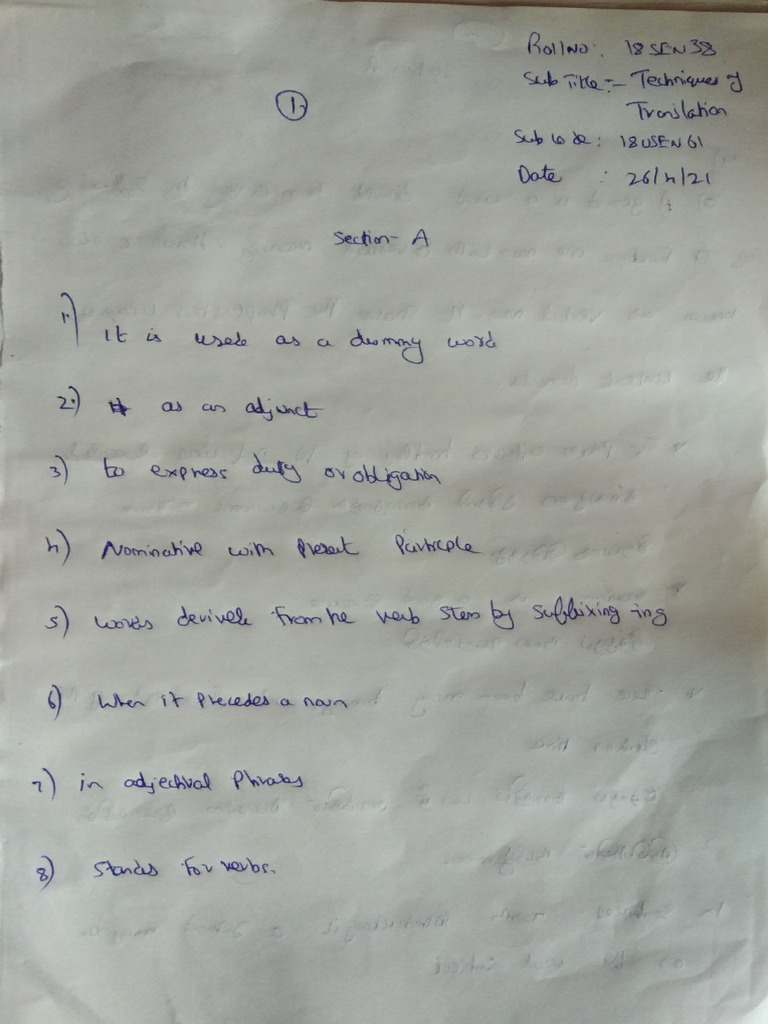 Roll No: 18SEN38
Sub Title:- Techniques of
Translation
1.
Sub Code: 18USEN61
Date : 26/4/21
Section-A
1) It is used as a dummy word
2) as an adjunct
3) to express duty or obligation
4) Nominative with Present Participle
5) words derived from the verb stem by suffixing -ing
6) When it precedes a noun
7) in adjectival Phrases
8) Stands for verbs.